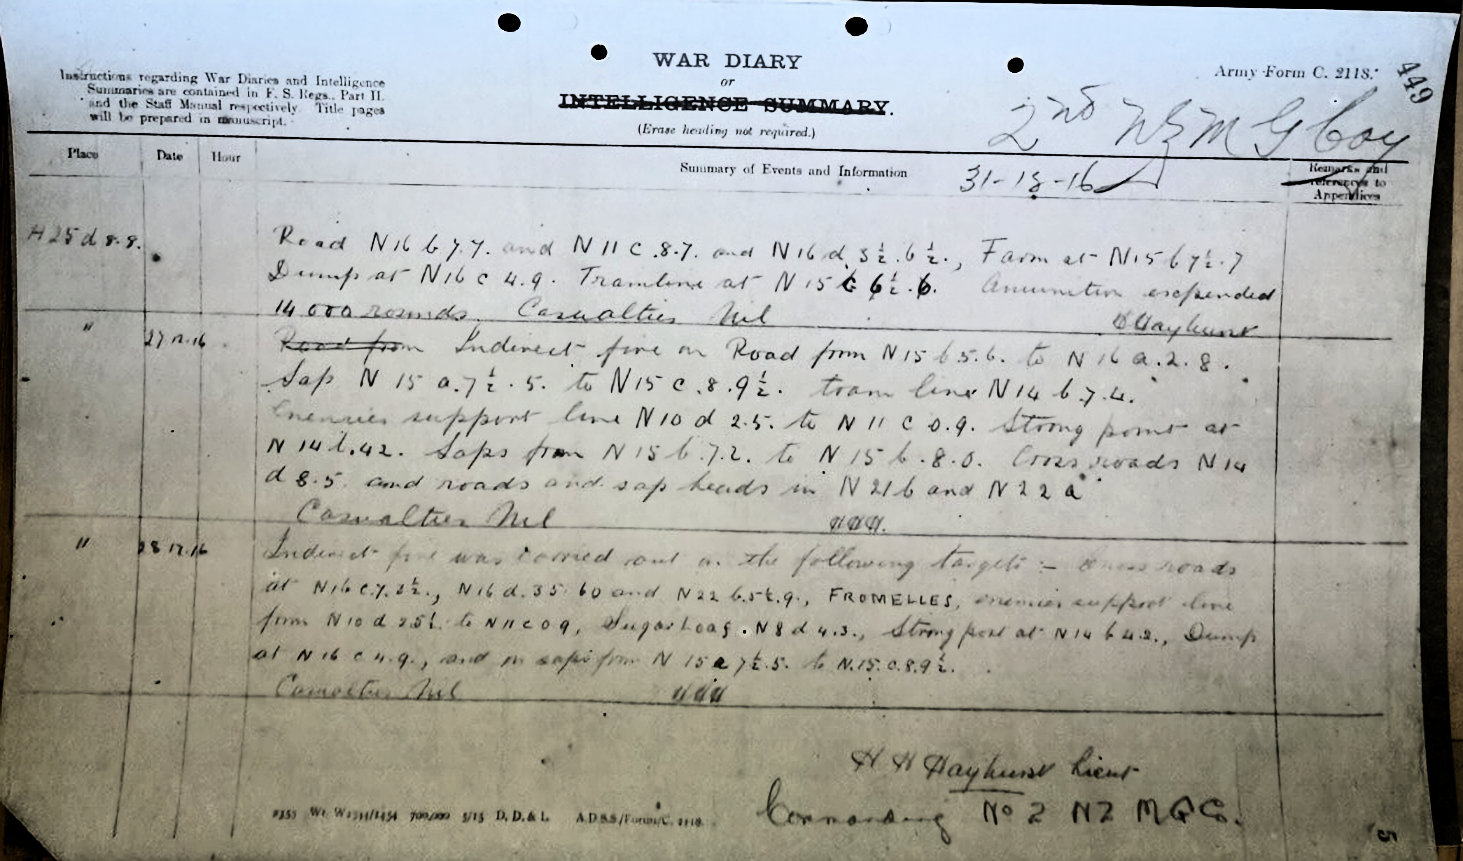 WAR DIARY
or
INTELLIGENCE SUMMARY.
(Erase heading not required.)
Instructions regarding War Diaries and Intelligence
Summaries are contained in F. S. Regs., Part II.
and the Staff Manual respectively. Title pages
will be prepared in manuscript.
Army Form C. 2118.
449
2nd NZ M G Coy
31-12-16
Place Date Hour Summary of Events and Information Remarks and
references to
Appendices
H 25 d 8.8. Road N 16 b 7.7. and N 11 c .8.7. and N 16 d, 3½.6½., Farm at N 15 b 7½.7
Dump at N 16 c 4.9. Tramline at N 15 6½.6. Amunition expended
14 000 rounds. Casualties Nil HHayhurst
" 27.12.16 Road from Indirect fire on Road from N 15 b.5.6. to N 16 a.2.8.
Sap N 15 a.7½.5. to N 15 c.8.9½. tram line N 14 b.7.4.
Enemies support line N 10 d 2.5. to N 11 c 0.9. Strong point at
N 14 b.42. Saps from N 15 b.7.2. to N 15 b.8.0. Cross roads N 14
d 8.5. and roads and sap heads in N 21 b and N 22 a
Casualties Nil HHH.
" 28.12.16 Indirect fire was carried out on the following targets :- Cross roads
at N 16 c.7.2½., N 16 d.35.60 and N 22 b.5½.9., FROMELLES, enemies support line
from N 10 d 2.5. to N 11 c 0 9, Sugar Loaf. N 8 d 4.3., Strong post at N 14 b 4.2., Dump
at N 16 c 4.9., and on saps from N 15 a 7½.5. to N.15.c.8.9½.
Casualties Nil HHH
H H Hayhurst Lieut
Commanding No 2 NZ M G Co.
2353 Wt. W2544/1454 700,000 5/15 D. D. & L. A.D.S.S./Forms/C. 2118.